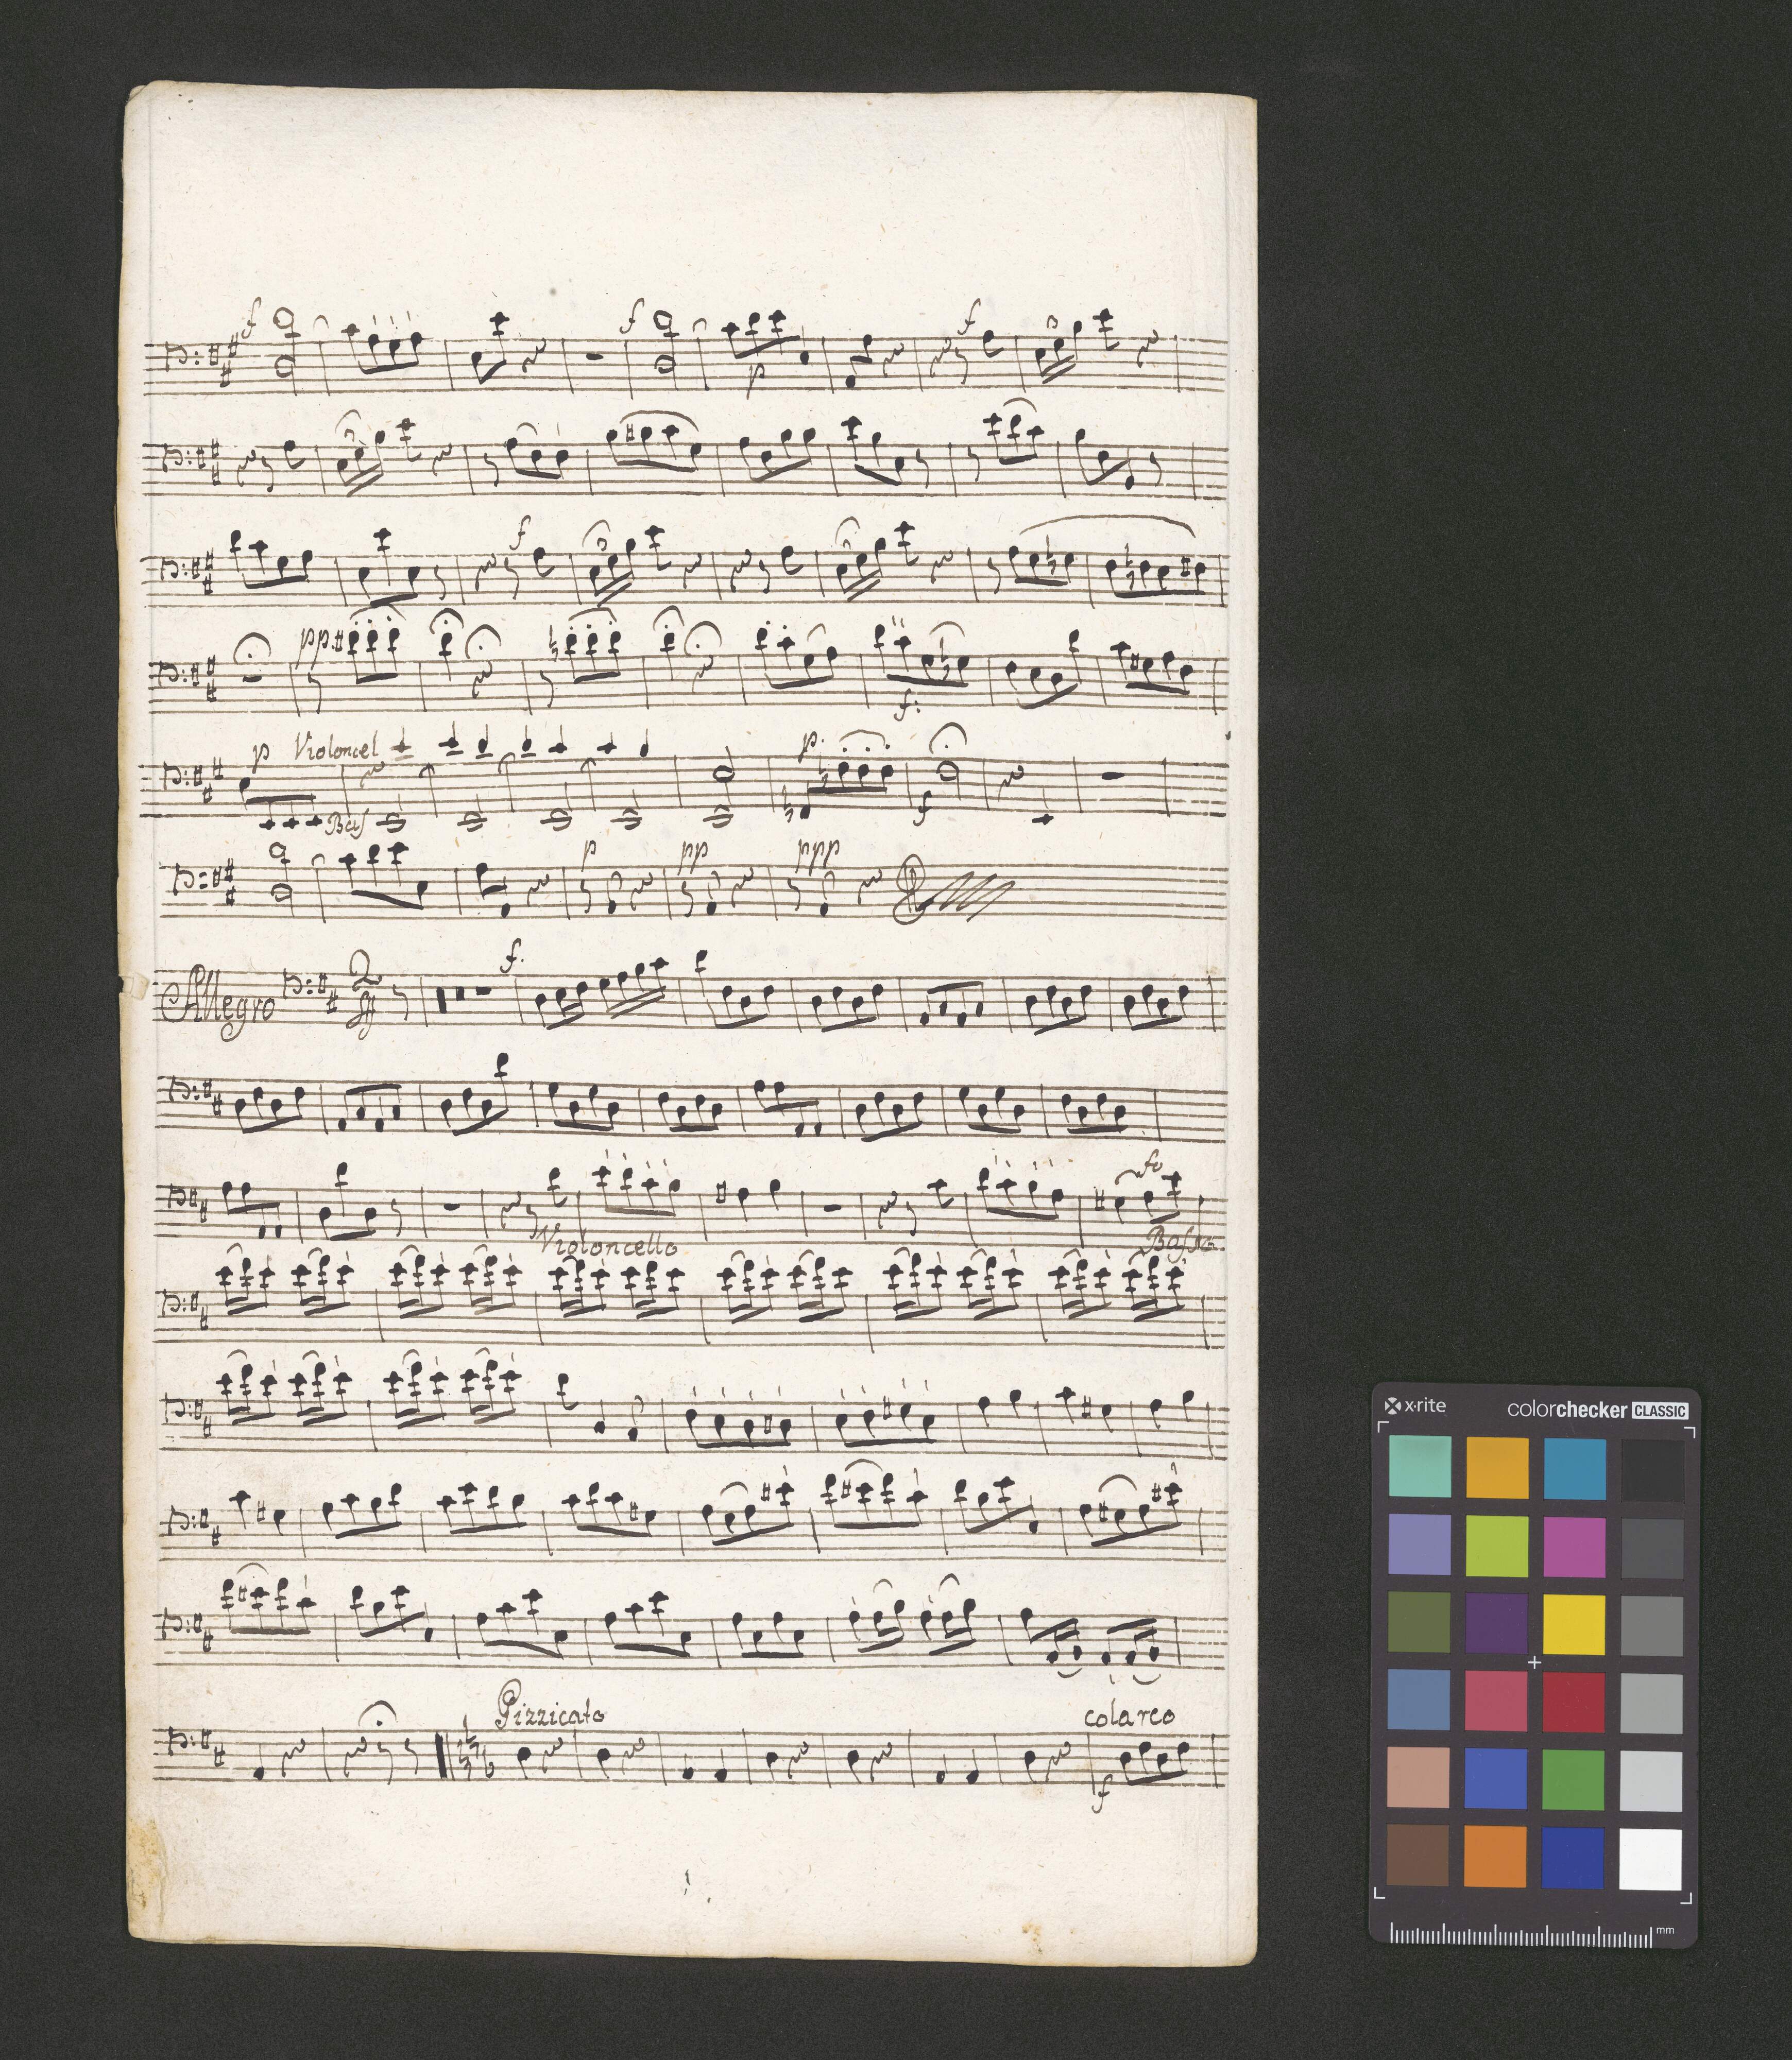 f f p f
3
3
f 3 3
pp. f:
p Violoncel p.
Bas f
p pp ppp
f.
Allegro 2/4
fo
Violoncello Basso
Pizzicato colarco
f
x·rite colorchecker CLASSIC
mm